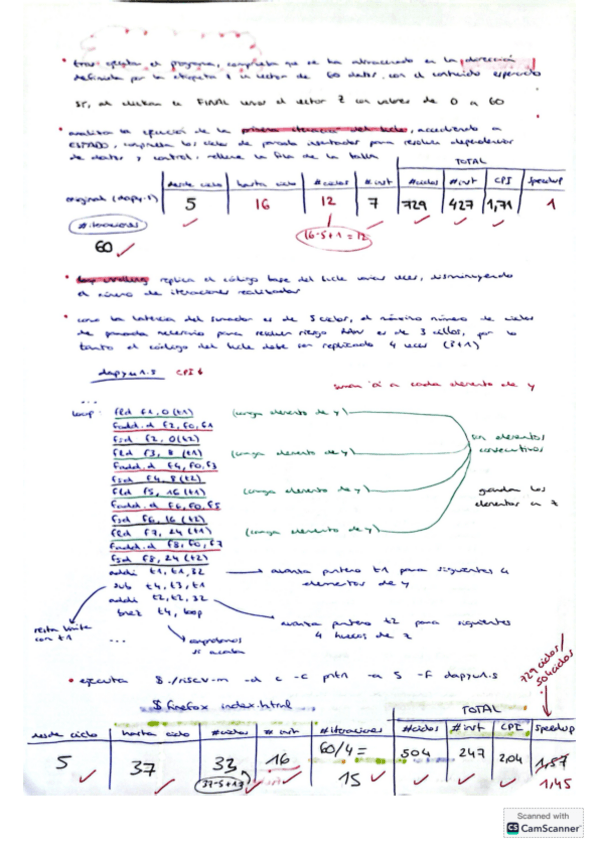 • tras ejecutar el programa, comprueba que se ha almacenado en la dirección
definida por la etiqueta z un vector de 60 datos, con el contenido esperado
sí, al clickar en FINAL veras el vector Z con valores de 0 a 60
• analizar la ejecución de la primera iteración del bucle, accediendo a
ESTADO, comprueba los ciclos de parada insertados para resolver dependencias
de datos y control. rellene la fila de la tabla
TOTAL
desde ciclo hasta ciclo #ciclos #inst #ciclos #inst CPI Speedup
original (dapy.s) 5 16 12 7 729 427 1,71 1
16-5+1=12
#iteraciones
60
• loop unrolling replica el código base del bucle varias veces, disminuyendo
el número de iteraciones realizadas
• como la latencia del sumador es de 3 ciclos, el máximo número de ciclos
de parada necesario para resolver riesgo es de 3 ciclos, por lo
tanto el código del bucle debe ser replicado 4 veces (3+1)
dapyu1.s
suman 'a' a cada elemento de y
...
loop: fld f1, 0(t1) (carga elemento de y)
fadd.d f2, f0, f1
fsd f2, 0(t2)
fld f3, 8(t1) (carga elemento de y)
fadd.d f4, f0, f3
fsd f4, 8(t2)
fld f5, 16(t1) (carga elemento de y)
fadd.d f6, f0, f5
fsd f6, 16(t2)
fld f7, 24(t1) (carga elemento de y)
fadd.d f8, f0, f7
fsd f8, 24(t2)
son elementos
consecutivos
guardan los
elementos en z
addi t1, t1, 32 avanza puntero t1 para siguientes 4
elementos de y
sub t4, t3, t1
addi t2, t2, 32 avanza puntero t2 para siguientes
4 huecos de z
bnez t4, loop
resta límite
con t1
...
comprobamos
si acaba
729 ciclos/
504 ciclos
• ejecuta $ ./riscv-m -d c -c pntn -a 5 -f dapyu1.s
$ firefox index.html
TOTAL
desde ciclo hasta ciclo #ciclos #inst #iteraciones #ciclos #inst CPI Speedup
5 37 33 16 60/4= 15 504 247 2,04 1,57
37-5+1 1,45
Scanned with
CS CamScanner